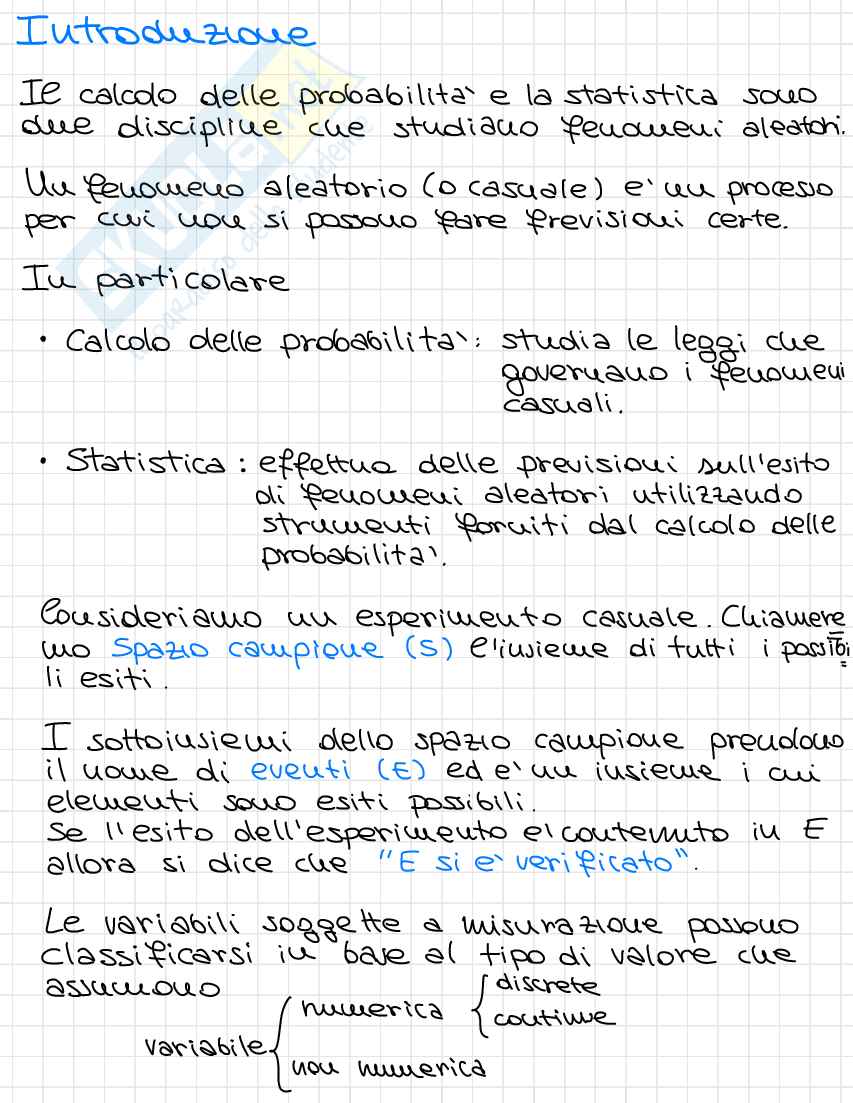 Introduzione
Il calcolo delle probabilità e la statistica sono
due discipline che studiano fenomeni aleatori.
Un fenomeno aleatorio (o casuale) è un processo
per cui non si possono fare previsioni certe.
In particolare
• Calcolo delle probabilità: studia le leggi che
governano i fenomeni
casuali.
• Statistica: effettua delle previsioni sull'esito
di fenomeni aleatori utilizzando
strumenti forniti dal calcolo delle
probabilità.
Consideriamo un esperimento casuale. Chiamere
mo Spazio campione (S) l'insieme di tutti i possibi
li esiti.
I sottoinsiemi dello spazio campione prendono
il nome di eventi (E) ed è un insieme i cui
elementi sono esiti possibili.
Se l'esito dell'esperimento è contenuto in E
allora si dice che "E si è verificato".
Le variabili soggette a misurazione possono
classificarsi in base al tipo di valore che
assumono
variabile
numerica
discrete
continue
non numerica